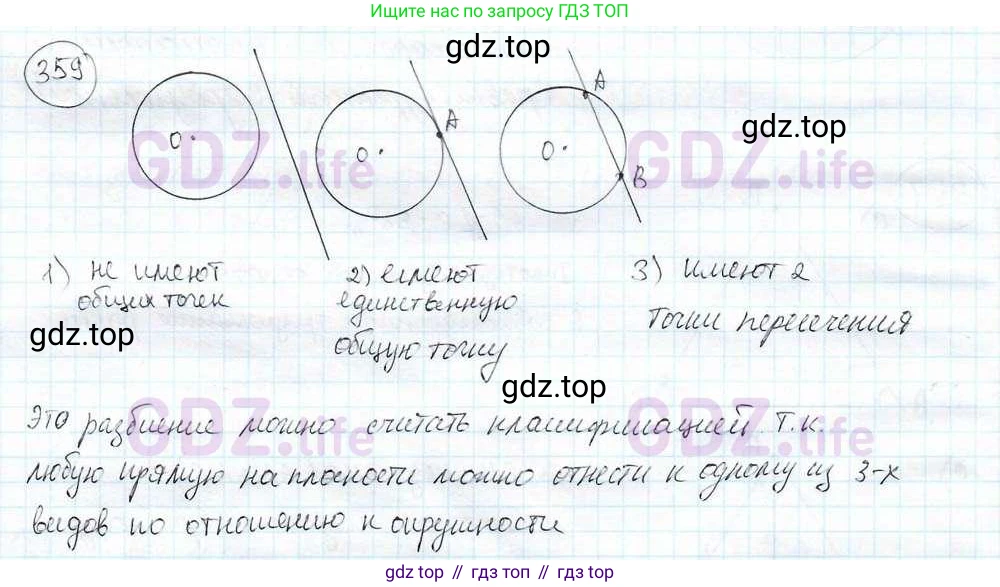 Ищите нас по запросу ГДЗ ТОП
359
gdz.top
A
A
O
O
O
B
gdz.top
GDZ.life
GDZ.life
1) не имеют
общих точек
2) имеют
единственную
общую точку
3) имеют 2
точки пересечения
gdz.top
gdz.top
GDZ.life
GDZ.life
Это разбиение можно считать классификацией т.к.
любую прямую на плоскости можно отнести к одному из 3-х
видов по отношению к окружности
gdz.top // гдз топ // gdz.top